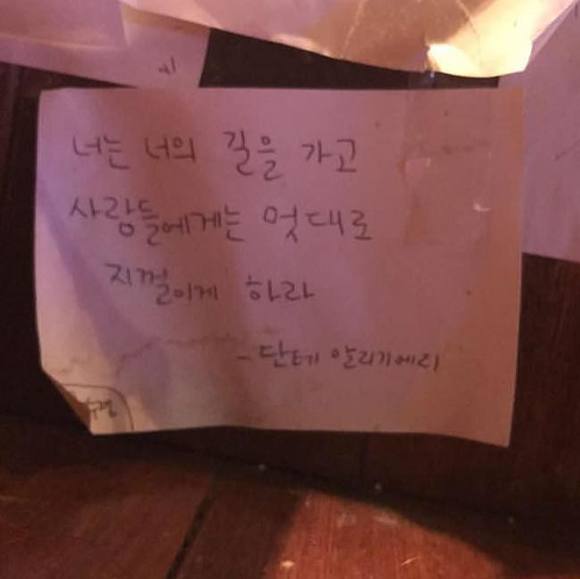 너는 너의 길을 가고
사람들에게는 멋대로
지껄이게 하라
- 단테 알리기에리